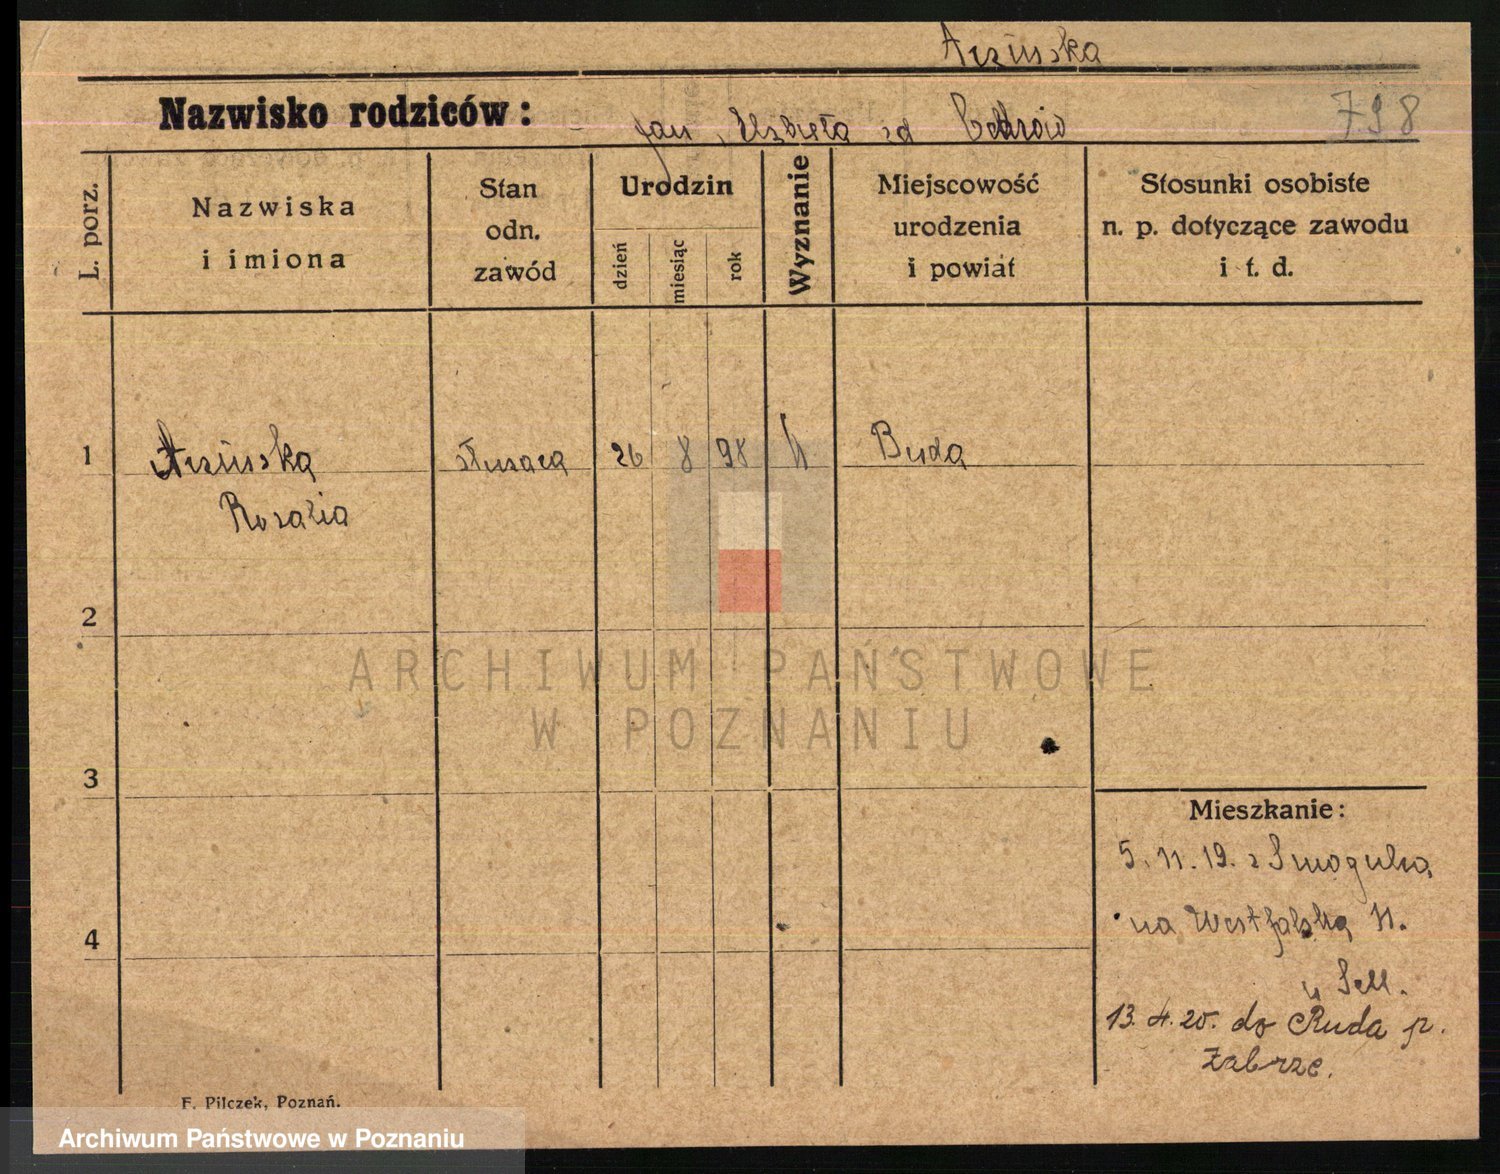 Nazwisko rodziców:
Jan, Elżbieta zd
798
L. porz.
Nazwiska
i imiona
Stan
odn.
zawód
Urodzin
dzień
miesiąc
rok
Wyznanie
Miejscowość
urodzenia
i powiat
Stosunki osobiste
n. p. dotyczące zawodu
i t. d.
1
służąca
26
8
98
Ruda
Rozalia
2
ARCHIWUM PAŃSTWOWE
W POZNANIU
3
Mieszkanie:
5. 11. 19. z Smogulca
na Westfalską 11.
u Sell.
13. 4. 20. do Ruda p.
Zabrze.
4
F. Pilczek, Poznań.
Archiwum Państwowe w Poznaniu